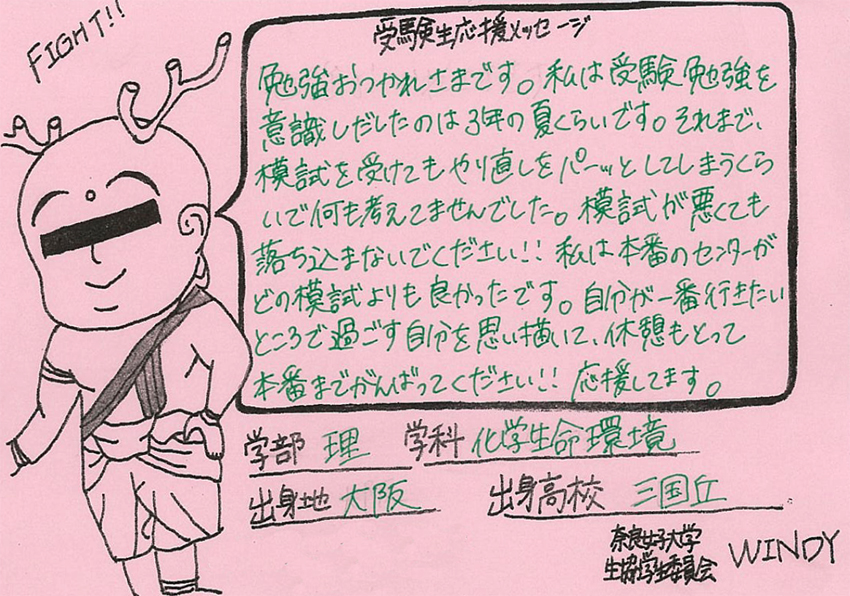 FIGHT!!
受験生応援メッセージ
勉強おつかれさまです。私は受験勉強を
意識しだしたのは3年の夏くらいです。それまで、
模試を受けてもやり直しをパーッとしてしまうくら
いで何も考えてませんでした。模試が悪くても
落ち込まないでください!! 私は本番のセンターが
どの模試よりも良かったです。自分が一番行きたい
ところで過ごす自分を思い描いて、休憩もとって
本番までがんばってください!! 応援してます。
学部 理 学科 化学生命環境
出身地 大阪 出身高校 三国丘
奈良女子大学
生協学生委員会 WINDY